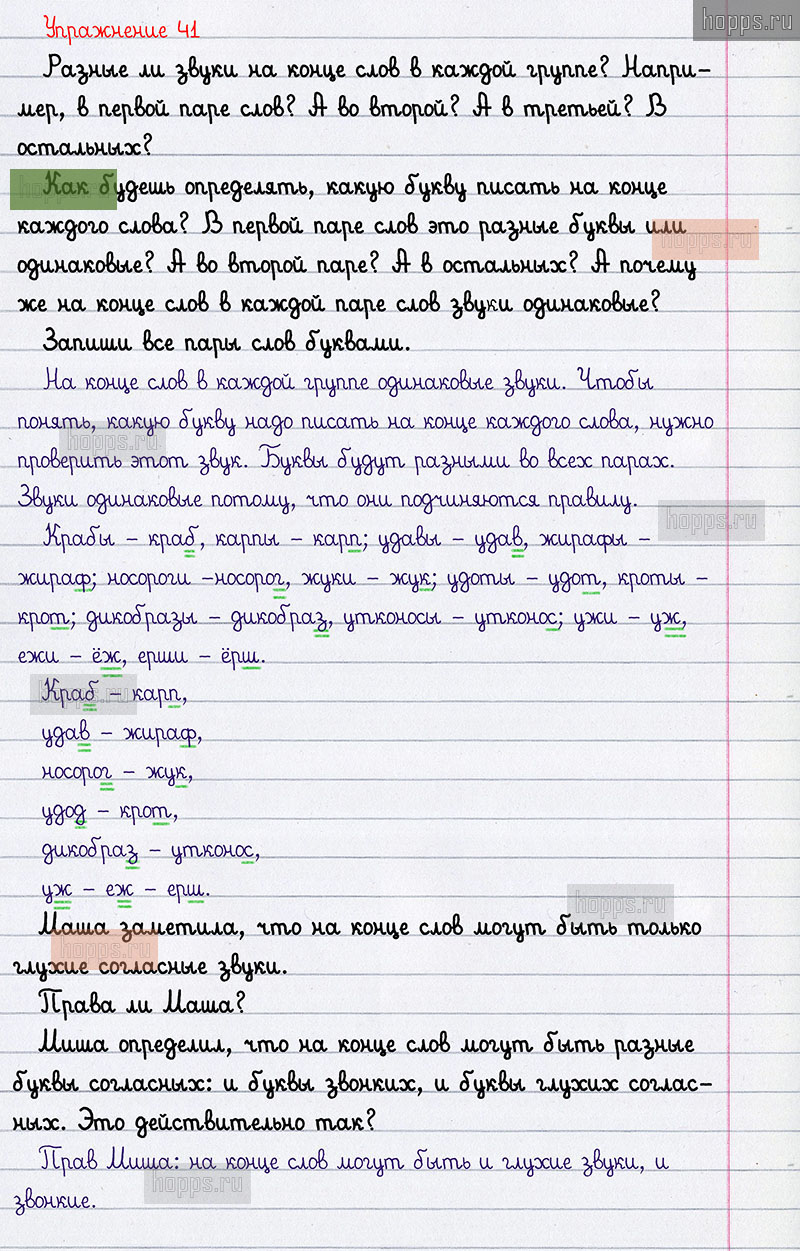 hopps.ru
Упражнение 41
Разные ли звуки на конце слов в каждой группе? Напри-
мер, в первой паре слов? А во второй? А в третьей? В
остальных?
Как будешь определять, какую букву писать на конце
hopps.ru
каждого слова? В первой паре слов это разные буквы или
hopps.ru
одинаковые? А во второй паре? А в остальных? А почему
же на конце слов в каждой паре слов звуки одинаковые?
Запиши все пары слов буквами.
На конце слов в каждой группе одинаковые звуки. Чтобы
понять, какую букву надо писать на конце каждого слова, нужно
hopps.ru
проверить этот звук. Буквы будут разными во всех парах.
Звуки одинаковые потому, что они подчиняются правилу.
hopps.ru
Крабы – краб, карпы – карп; удавы – удав, жирафы –
жираф; носороги –носорог, жуки – жук; удоты – удот, кроты –
крот; дикобразы – дикобраз, утконосы – утконос; ужи – уж,
ежи – ёж, ерши – ёрш.
Краб – карп,
hopps.ru
удав – жираф,
носорог – жук,
удод – крот,
дикобраз – утконос,
уж – еж – ерш.
hopps.ru
Маша заметила, что на конце слов могут быть только
hopps.ru
глухие согласные звуки.
Права ли Маша?
Миша определил, что на конце слов могут быть разные
буквы согласных: и буквы звонких, и буквы глухих соглас-
ных. Это действительно так?
Прав Миша: на конце слов могут быть и глухие звуки, и
hopps.ru
звонкие.